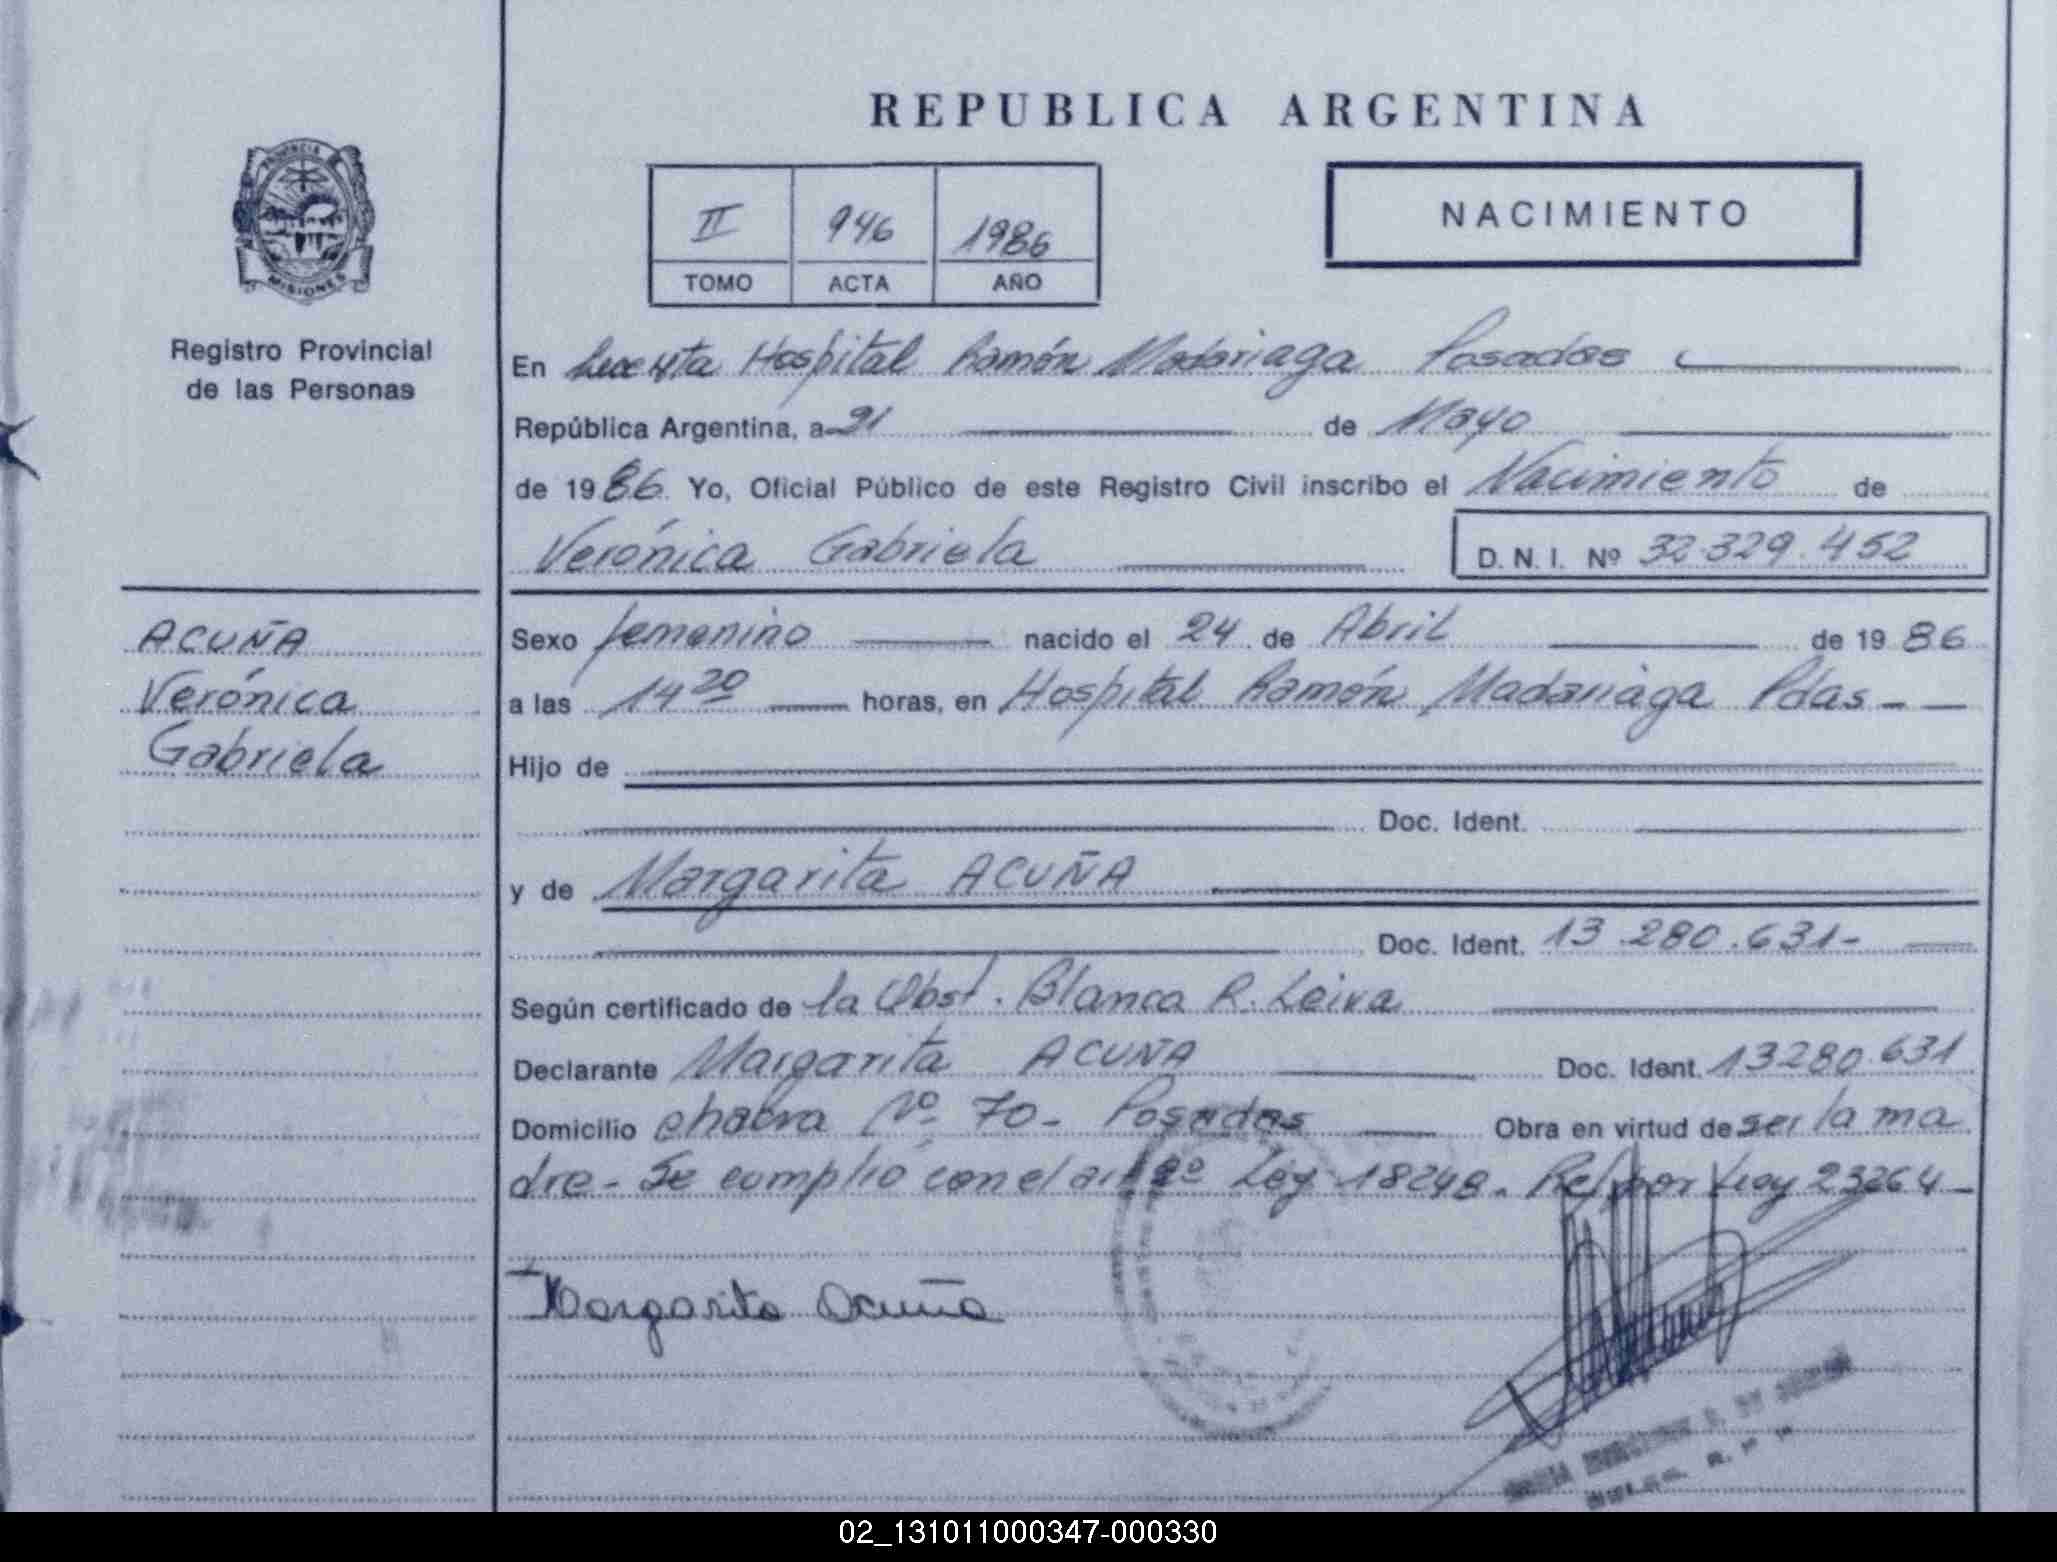 REPUBLICA ARGENTINA
PROVINCIA DE
MISIONES
Registro Provincial
de las Personas
II 946 1986
TOMO ACTA AÑO
NACIMIENTO
En Hospital Ramón Madariaga Posadas
República Argentina, a 21 de Mayo
de 1986. Yo, Oficial Público de este Registro Civil inscribo el Nacimiento de
Verónica Gabriela D. N. I. Nº 32.329.452
ACUÑA
Verónica
Gabriela
Sexo femenino nacido el 24 de Abril de 1986
a las 14 20 horas, en Hospital Ramón Madariaga Pdas - -
Hijo de
Doc. Ident.
y de Margarita ACUÑA
Doc. Ident. 13.280.631-
Según certificado de la Obst. Blanca R. Leiva
Declarante Margarita ACUÑA Doc. Ident. 13280.631
Domicilio chacra Nº 70- Posadas Obra en virtud de ser la ma
dre - Se cumplió con el art 2º Ley 18248. Ref por Ley 23264 -
Margarita Acuña
02_131011000347-000330